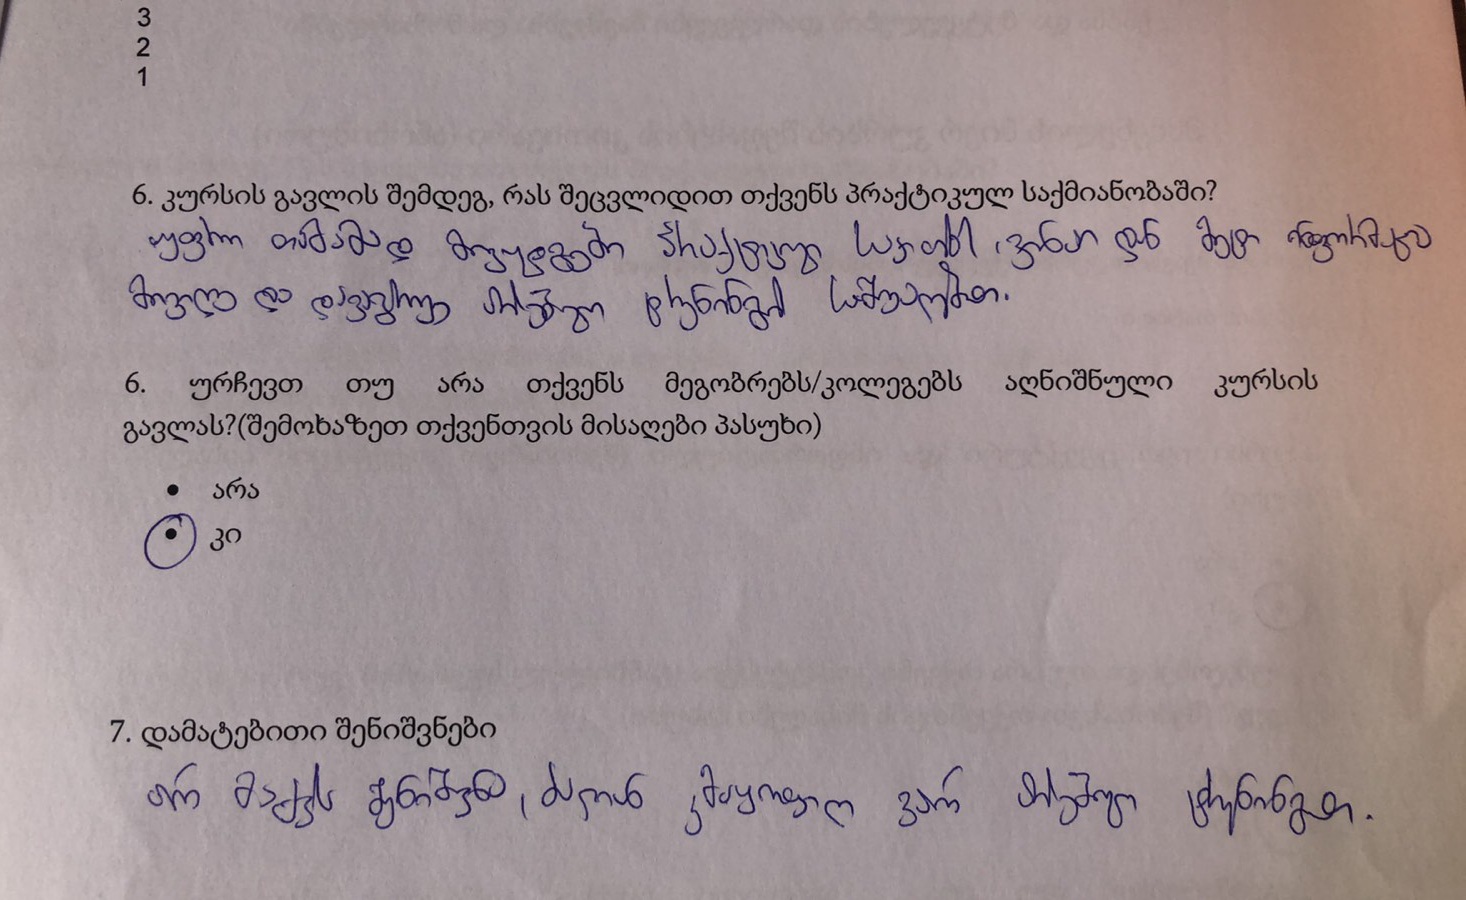 3
2
1
6. კურსის გავლის შემდეგ, რას შეცვლიდით თქვენს პრაქტიკულ საქმიანობაში?
უფრო თამამად მივუდგები პრაქტიკულ საკითხს, მეტი ინფორმაცია
მივიღე და დავაგროვე არსებული ტრენინგის საშუალებით.
6. ურჩევთ თუ არა თქვენს მეგობრებს/კოლეგებს აღნიშნული კურსის
გავლას?(შემოხაზეთ თქვენთვის მისაღები პასუხი)
• არა
• კი
7. დამატებითი შენიშვნები
არ მაქვს შენიშვნა, ძალიან კმაყოფილი ვარ არსებული ტრენინგით.